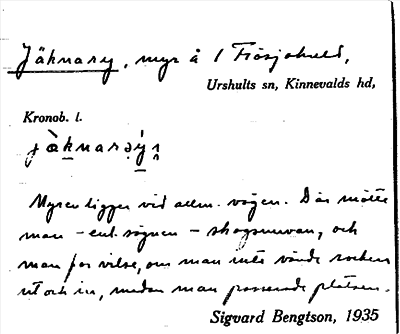 Jäknary, myr å 1 Fiösjohult,
Urshults sn, Kinnevalds hd,
Kronob. l.
Myren ligger vid allm. vägen. Där mötte
man – enl. sägnen – skogsnuvan, och
man for vilse, om man inte vände rocken
ut och in, medan man passerade platsen.
Sigvard Bengtson, 1935